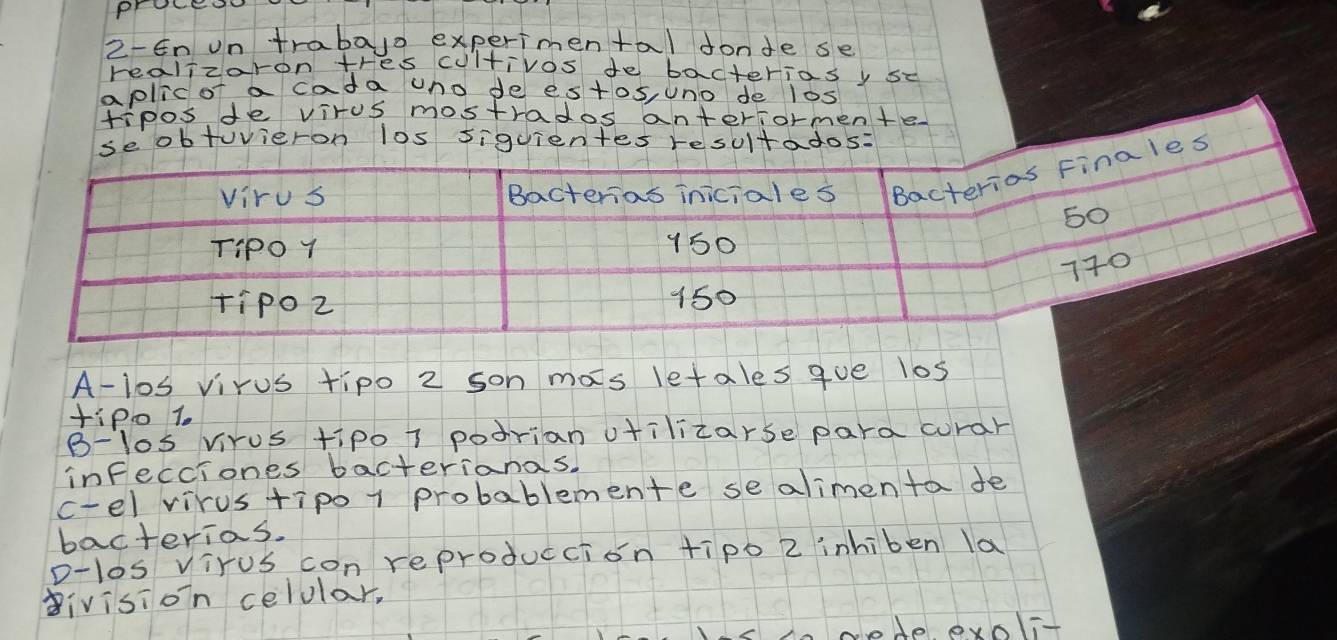 proceso
2-En un trabajo experimental donde se
realizaron tres cultivos de bacterias y se
aplico a cada uno de estos, uno de los
tipos de virus mostrados anteriormente
se obtuvieron los siguientes resultados:
Virus Bacterias iniciales Bacterias Finales
Tipo 1 150 50
Tipo 2 150 170
A-los virus tipo 2 son más letales que los
tipo 1.
B-los virus tipo 1 podrian utilizarse para curar
infecciones bacterianas.
C-el virus tipo 1 probablemente se alimenta de
bacterias.
D-los virus con reproducción tipo 2 inhiben la
división celular.